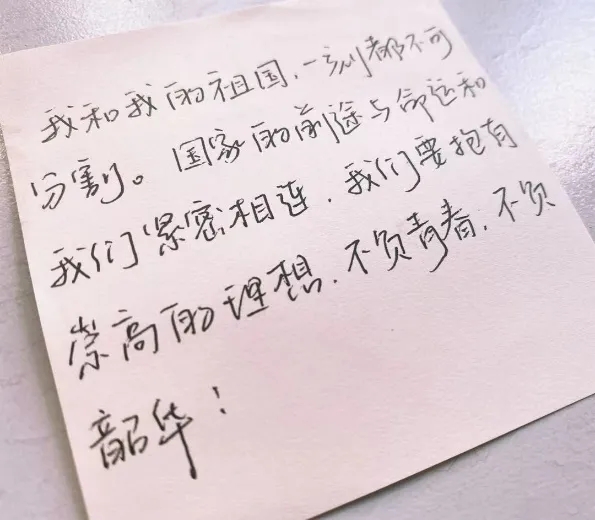 我和我的祖国,一刻都不可
分割。国家的前途与命运和
我们紧密相连,我们要抱有
崇高的理想,不负青春,不负
韶华!